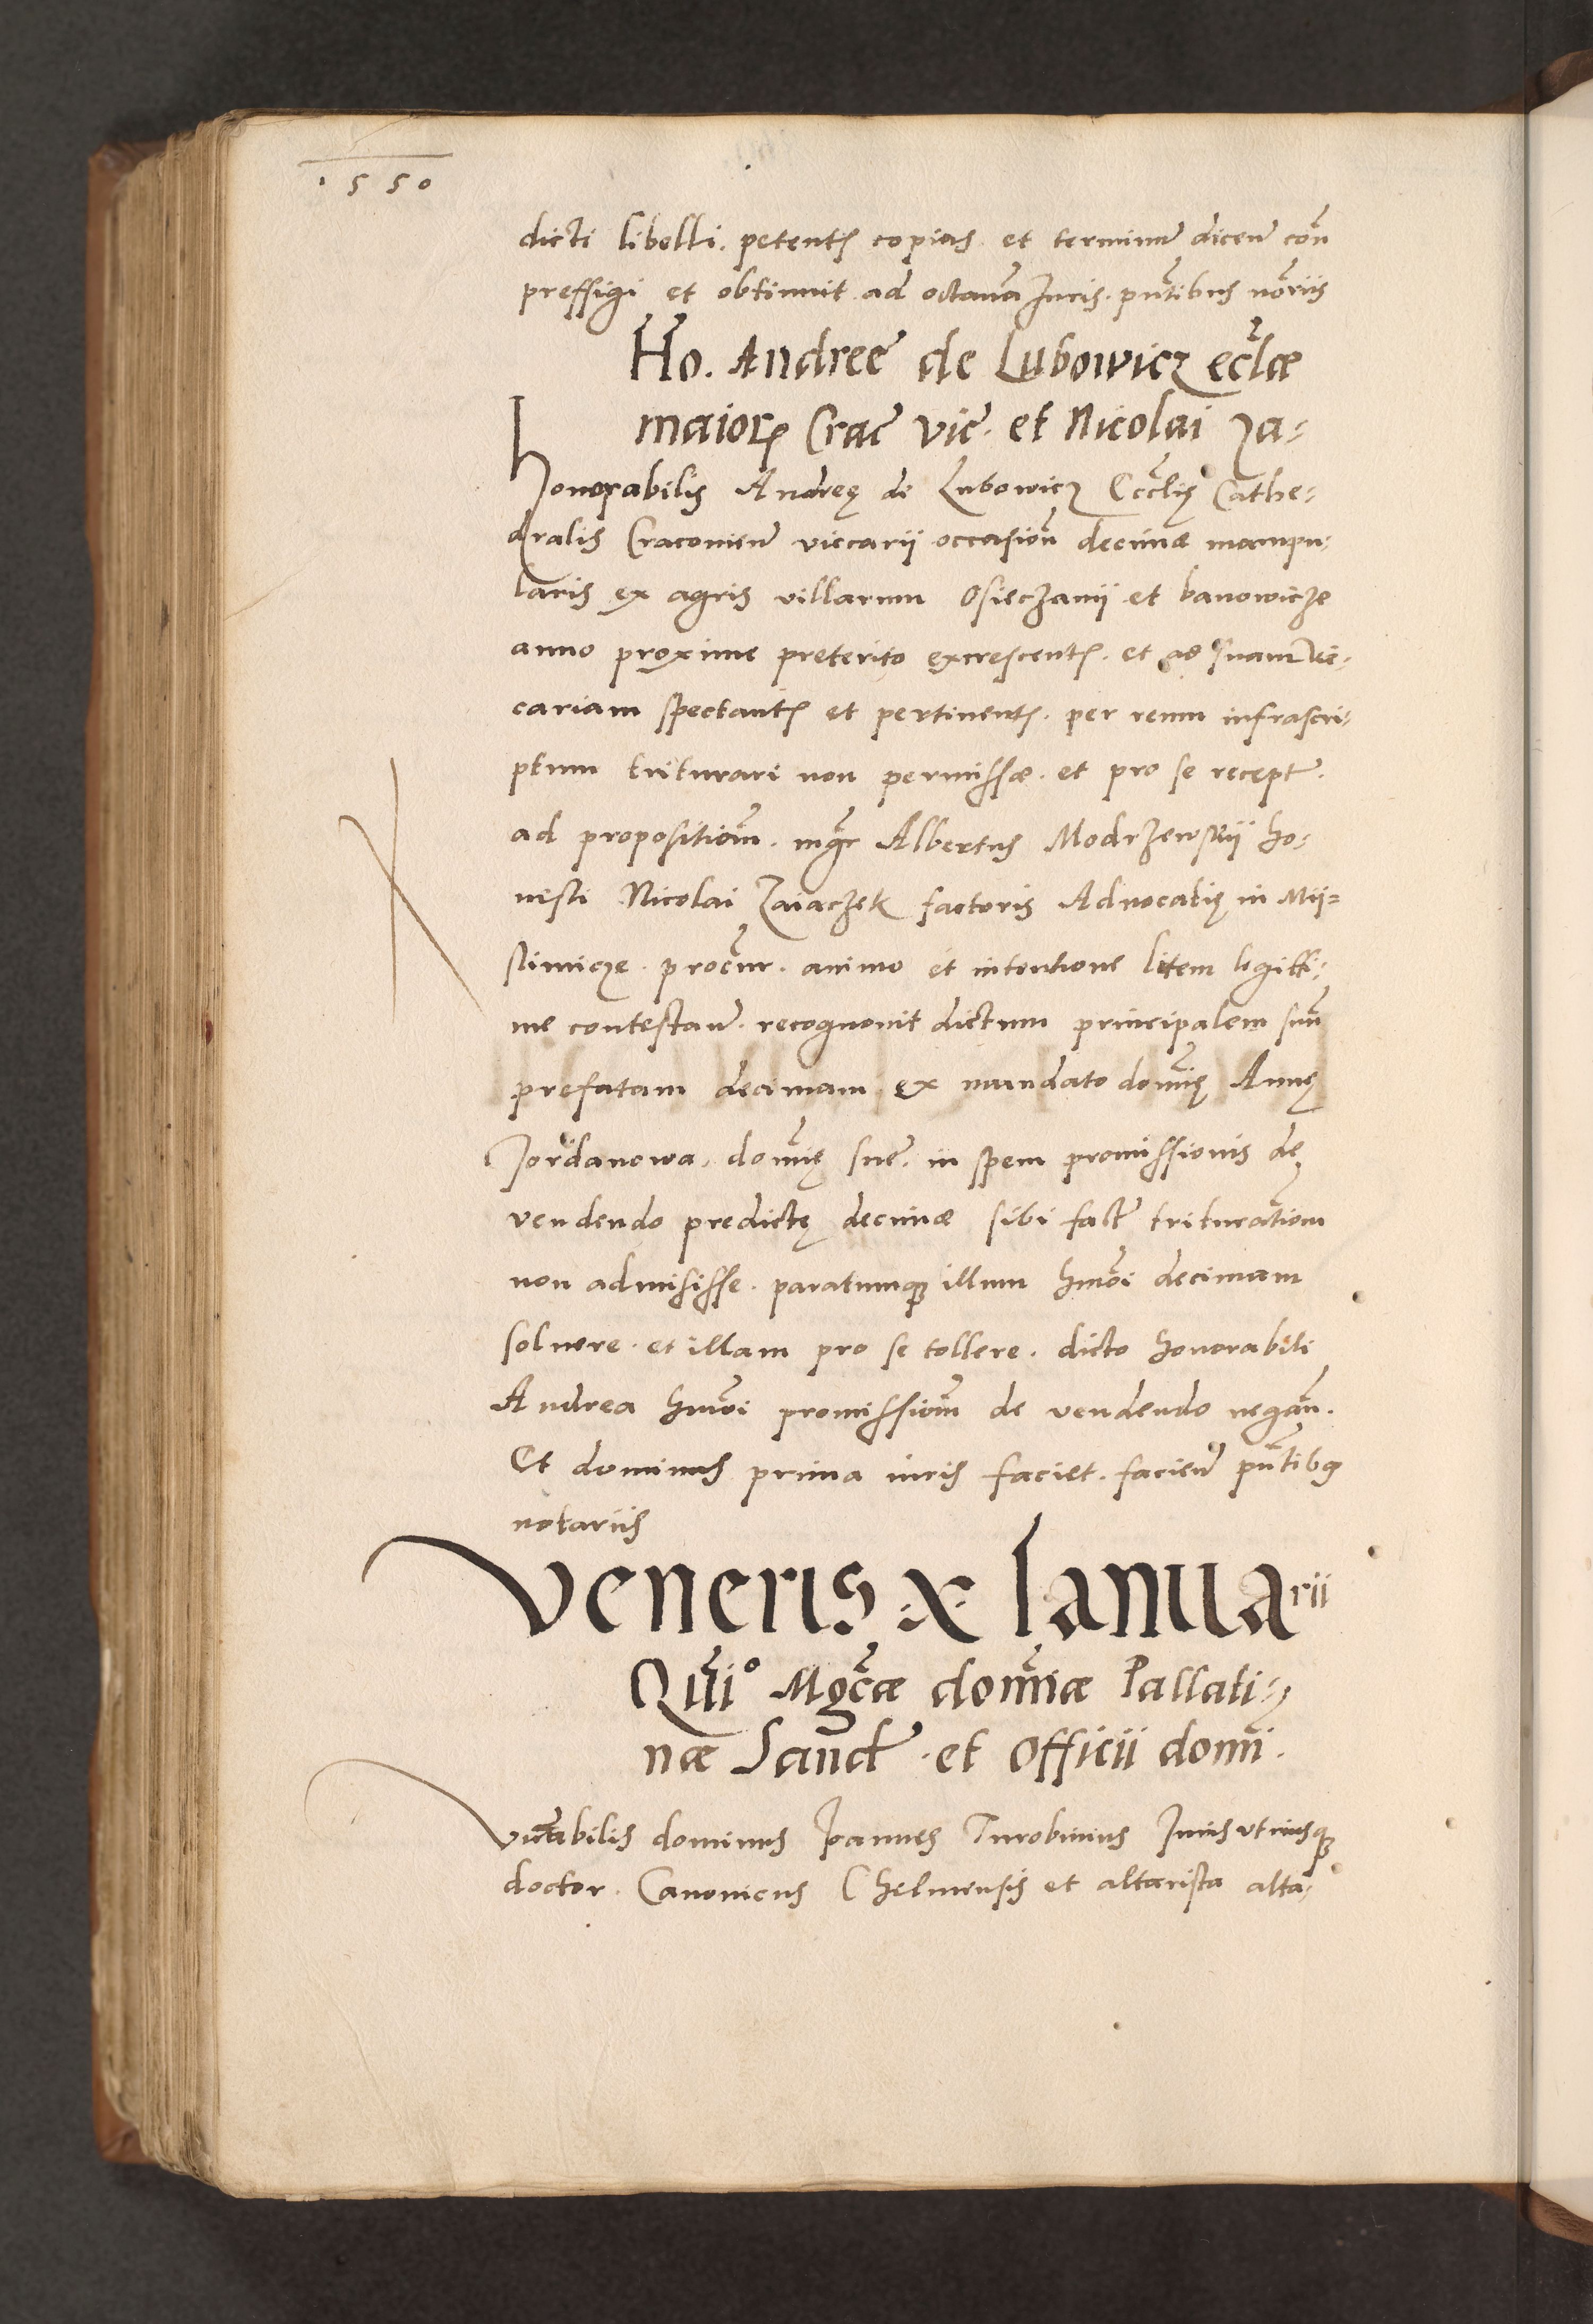 1550
dicti libelli. petentꝭ copias et terminũ dicenđ coñ
preffigi et obtinuit ad octauã Iuris. pñtibus nõriis
Ho. Andreẽ de Lubowicz eclãe
maiorꝭ Crac̃ vic̃. et Nicolai Za-
honorabilis Andreę de Lubowicz Eccl̃ię Cathe-
dralis Cracouien̄ viccarii occasioñ decimæ manipu-
laris ex agris villarum Osieczanij et banowicze
anno proxime preterito excrescentꝭ. et ad suam vic-
cariam spectantꝭ et pertinentꝭ. per reum infrascri-
ptum triturari non permissæ. et pro se recept̃.
ad propositioñ. mg̃r Albertus Modrzewskij ho-
nesti Nicolai Zaiaczek factoris Aduocatię in Mij-
slimicze. procur̃. animo et intentione litem legitti-
me contestan̄. recognouit dictum principalem suũ
prefatam decimam ex mandato dom̃ię Annę
Jordanowa. dom̃ię sue. in spem promissionis de
vendendo predictę decimæ sibi fact̃ trituratiõem
non admisisse. paratumqꝫ illum hmõi decimam
soluere. et illam pro se tollere. dicto honorabili
Andrea hmõi promissioñ de vendendo negañ.
Et dominus prima iuris faciet. facien̄ pñtibꝰ
notariis
Veneris .x. Ianuarii
Qum̃i° Mgc̃æ dom̃iæ Pallati-
næ Sand̃ . et Officii domi̇.
Vñrabilis dominus Joannes Turobinius Iuris utriusqꝫ
doctor. Canonicus Chelmensis et altarista alta-